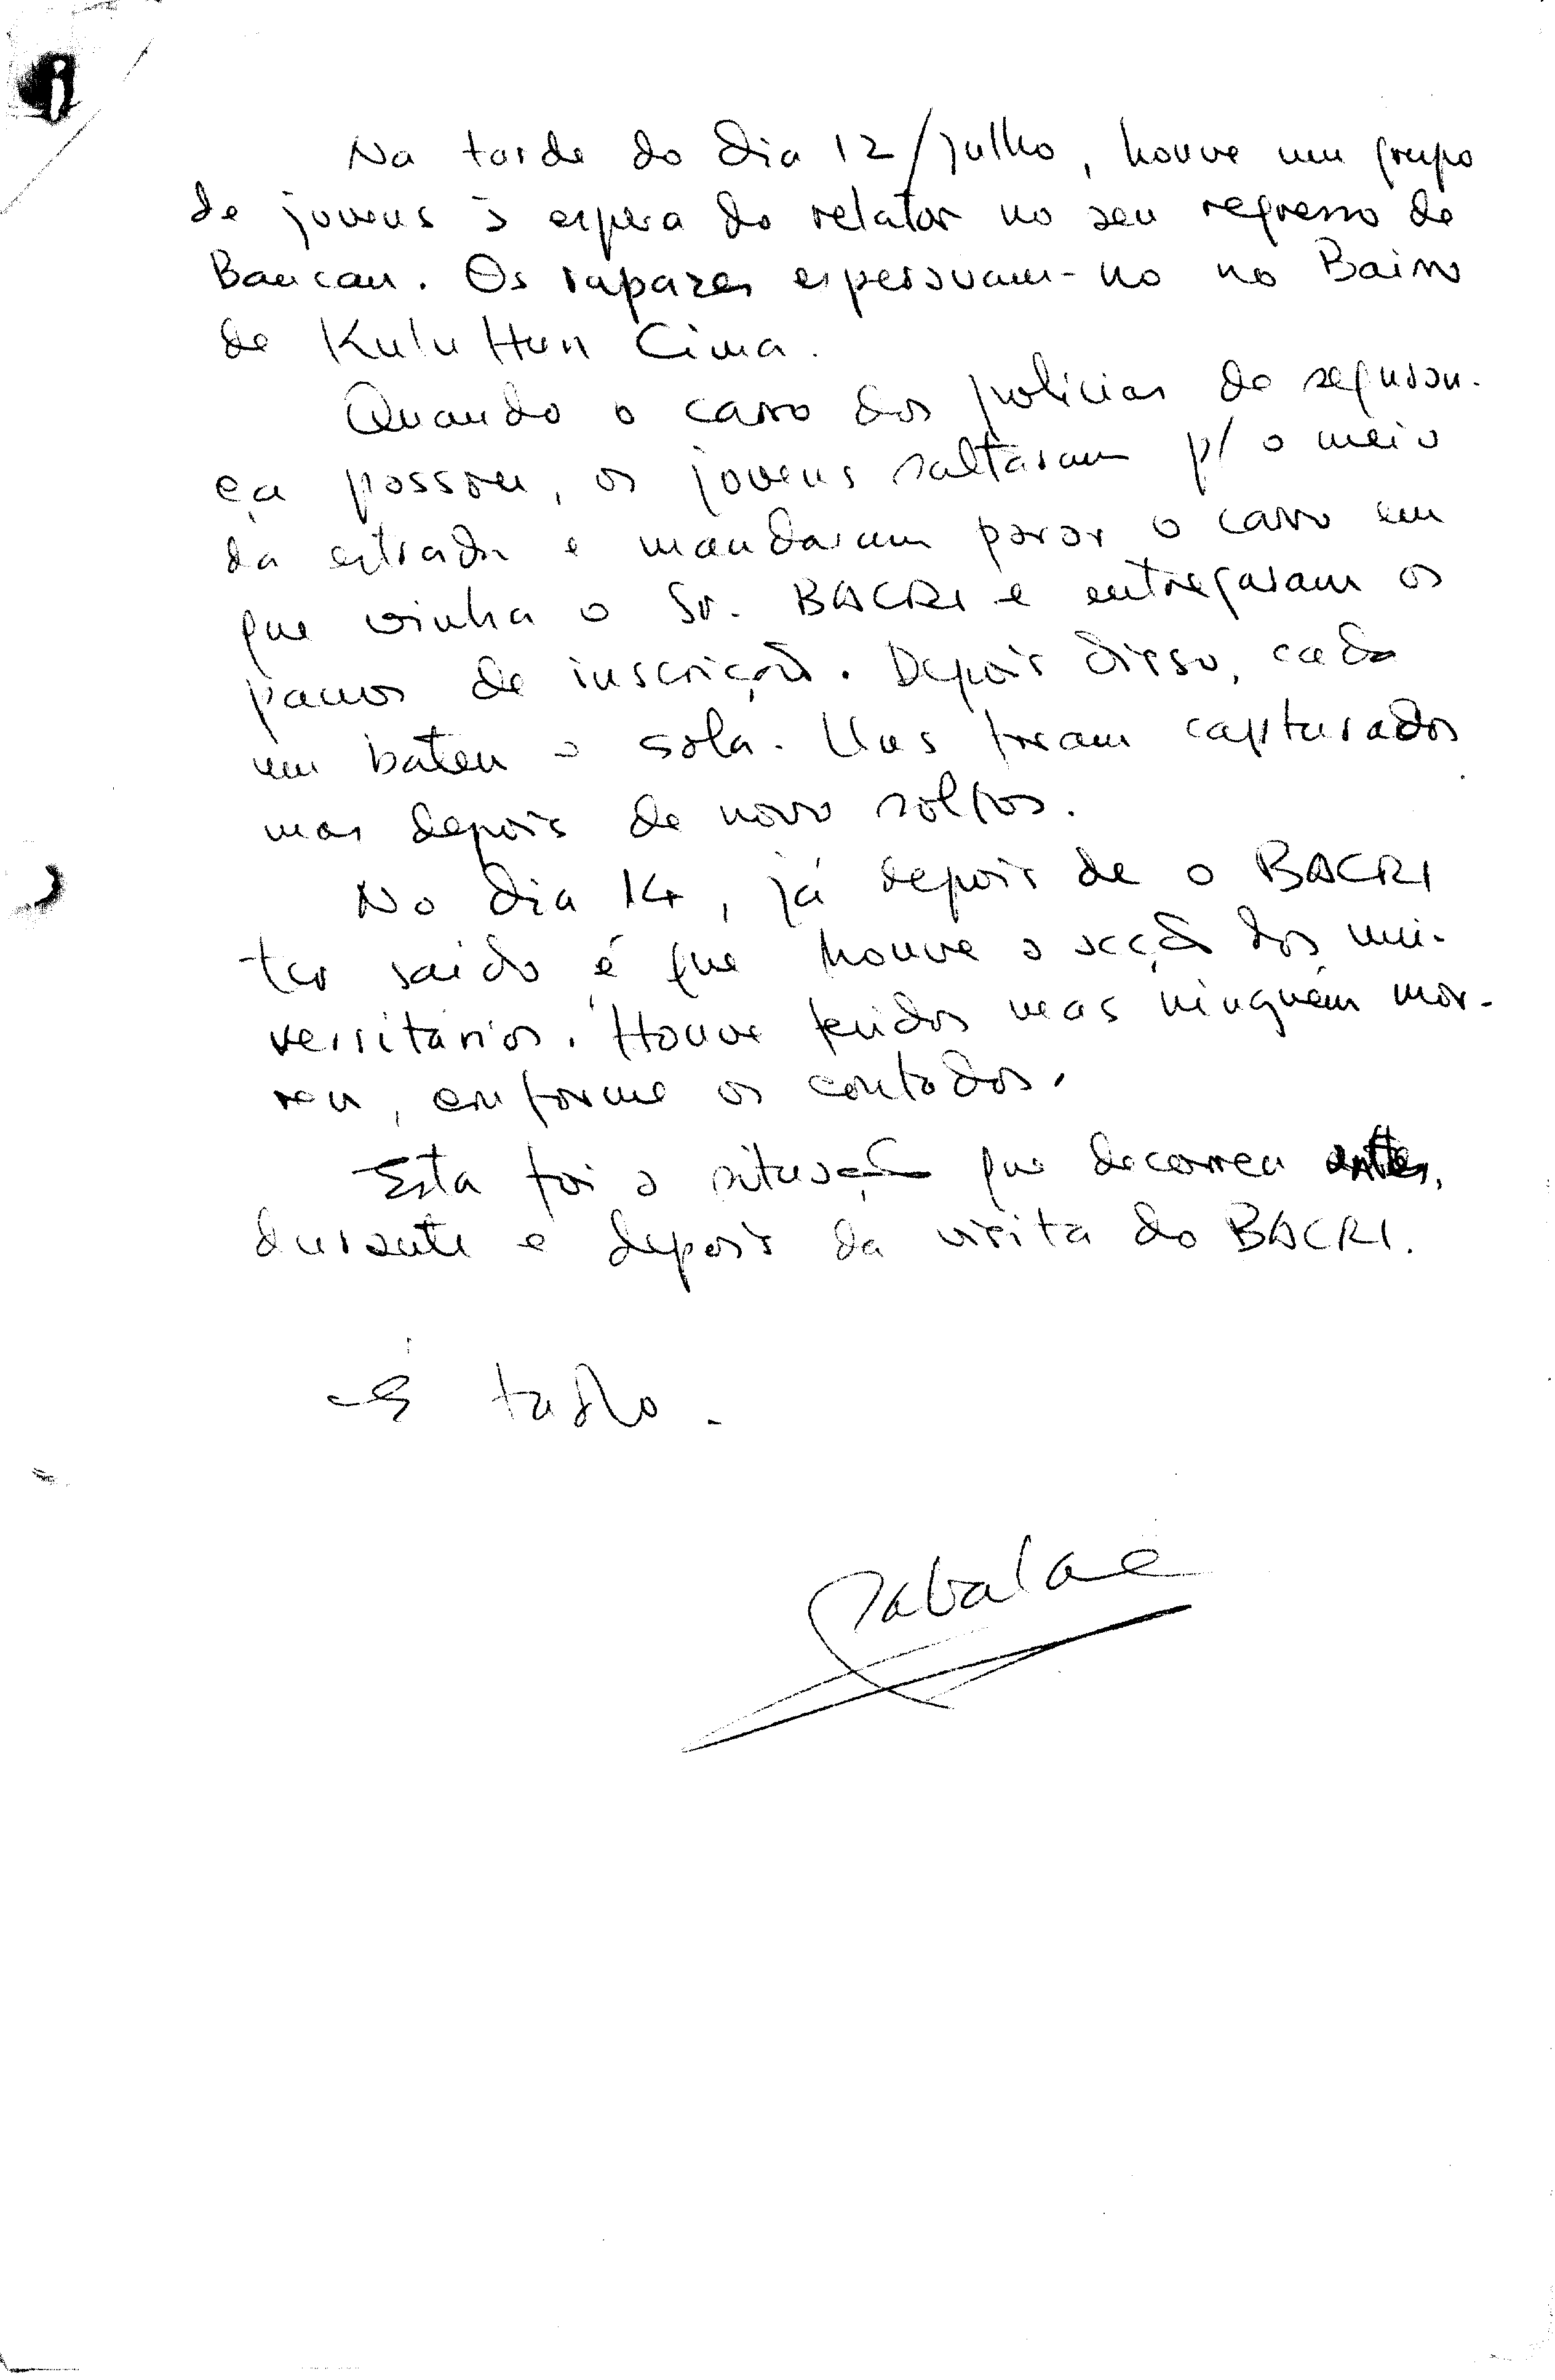 Na tarde do dia 12/julho, houve um grupo
de jovens à espera do relator no seu regresso de
Baucau. Os rapazes esperavam-no no Bairro
de Kulu Hun Cima.
Quando o carro dos polícias de seguran-
ça passou, os jovens saltaram p/ o meio
da estrada e mandaram parar o carro em
que vinha o Sr. BACRI e entregaram os
panos de inscrição. Depois disso, cada
um bateu a sola. Uns foram capturados
mas depois de novo soltos.
No dia 14, já depois de o BACRI
ter saido é que houve a acção dos uni-
versitários. Houve feridos mas ninguém mor-
reu, conforme os contados.
Esta foi a situação que decorreu antes,
durante e depois da visita do BACRI.
É tudo.
Sabalae